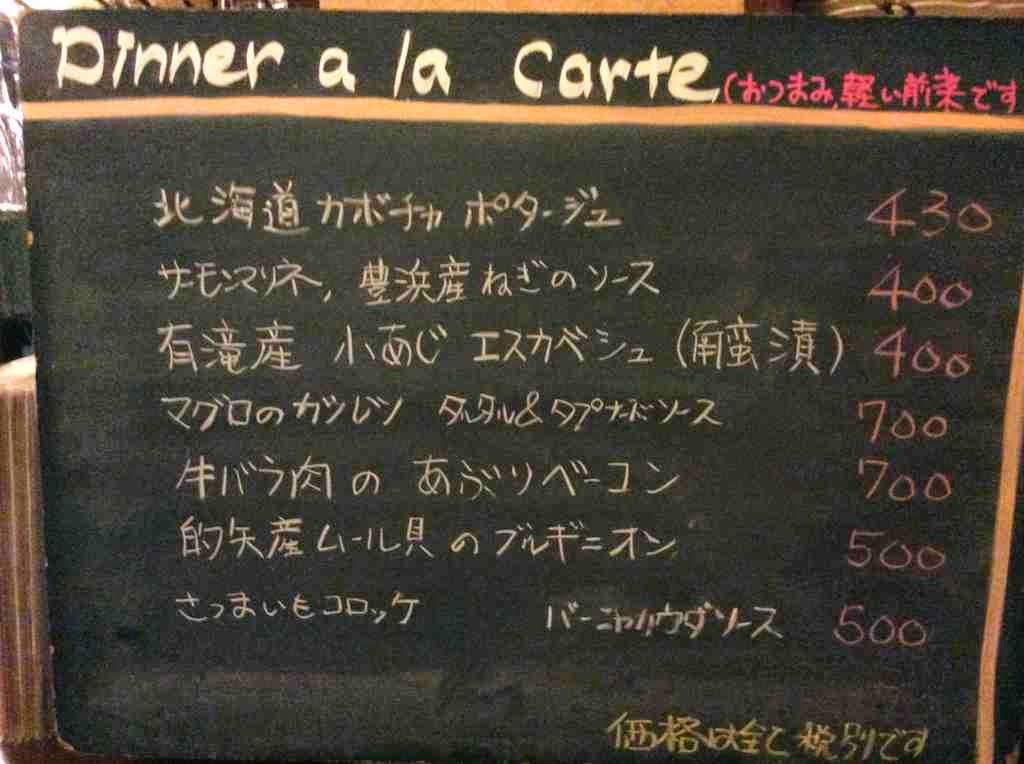 Dinner a la Carte (おつまみ,軽い前菜です
北海道カボチャ ポタージュ 430
サーモンマリネ, 豊浜産ねぎのソース 400
有滝産 小あじ エスカベシュ (南蛮漬) 400
マグロのカツレツ タルタル&タプナードソース 700
牛バラ肉の あぶりベーコン 700
的矢産ムール貝のブルギニオン 500
さつまいもコロッケ バーニャカウダソース 500
価格は全て税別です